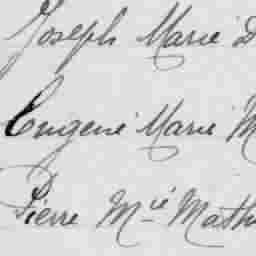 Joseph Marie
Eugene Marie
Pierre Mie Math